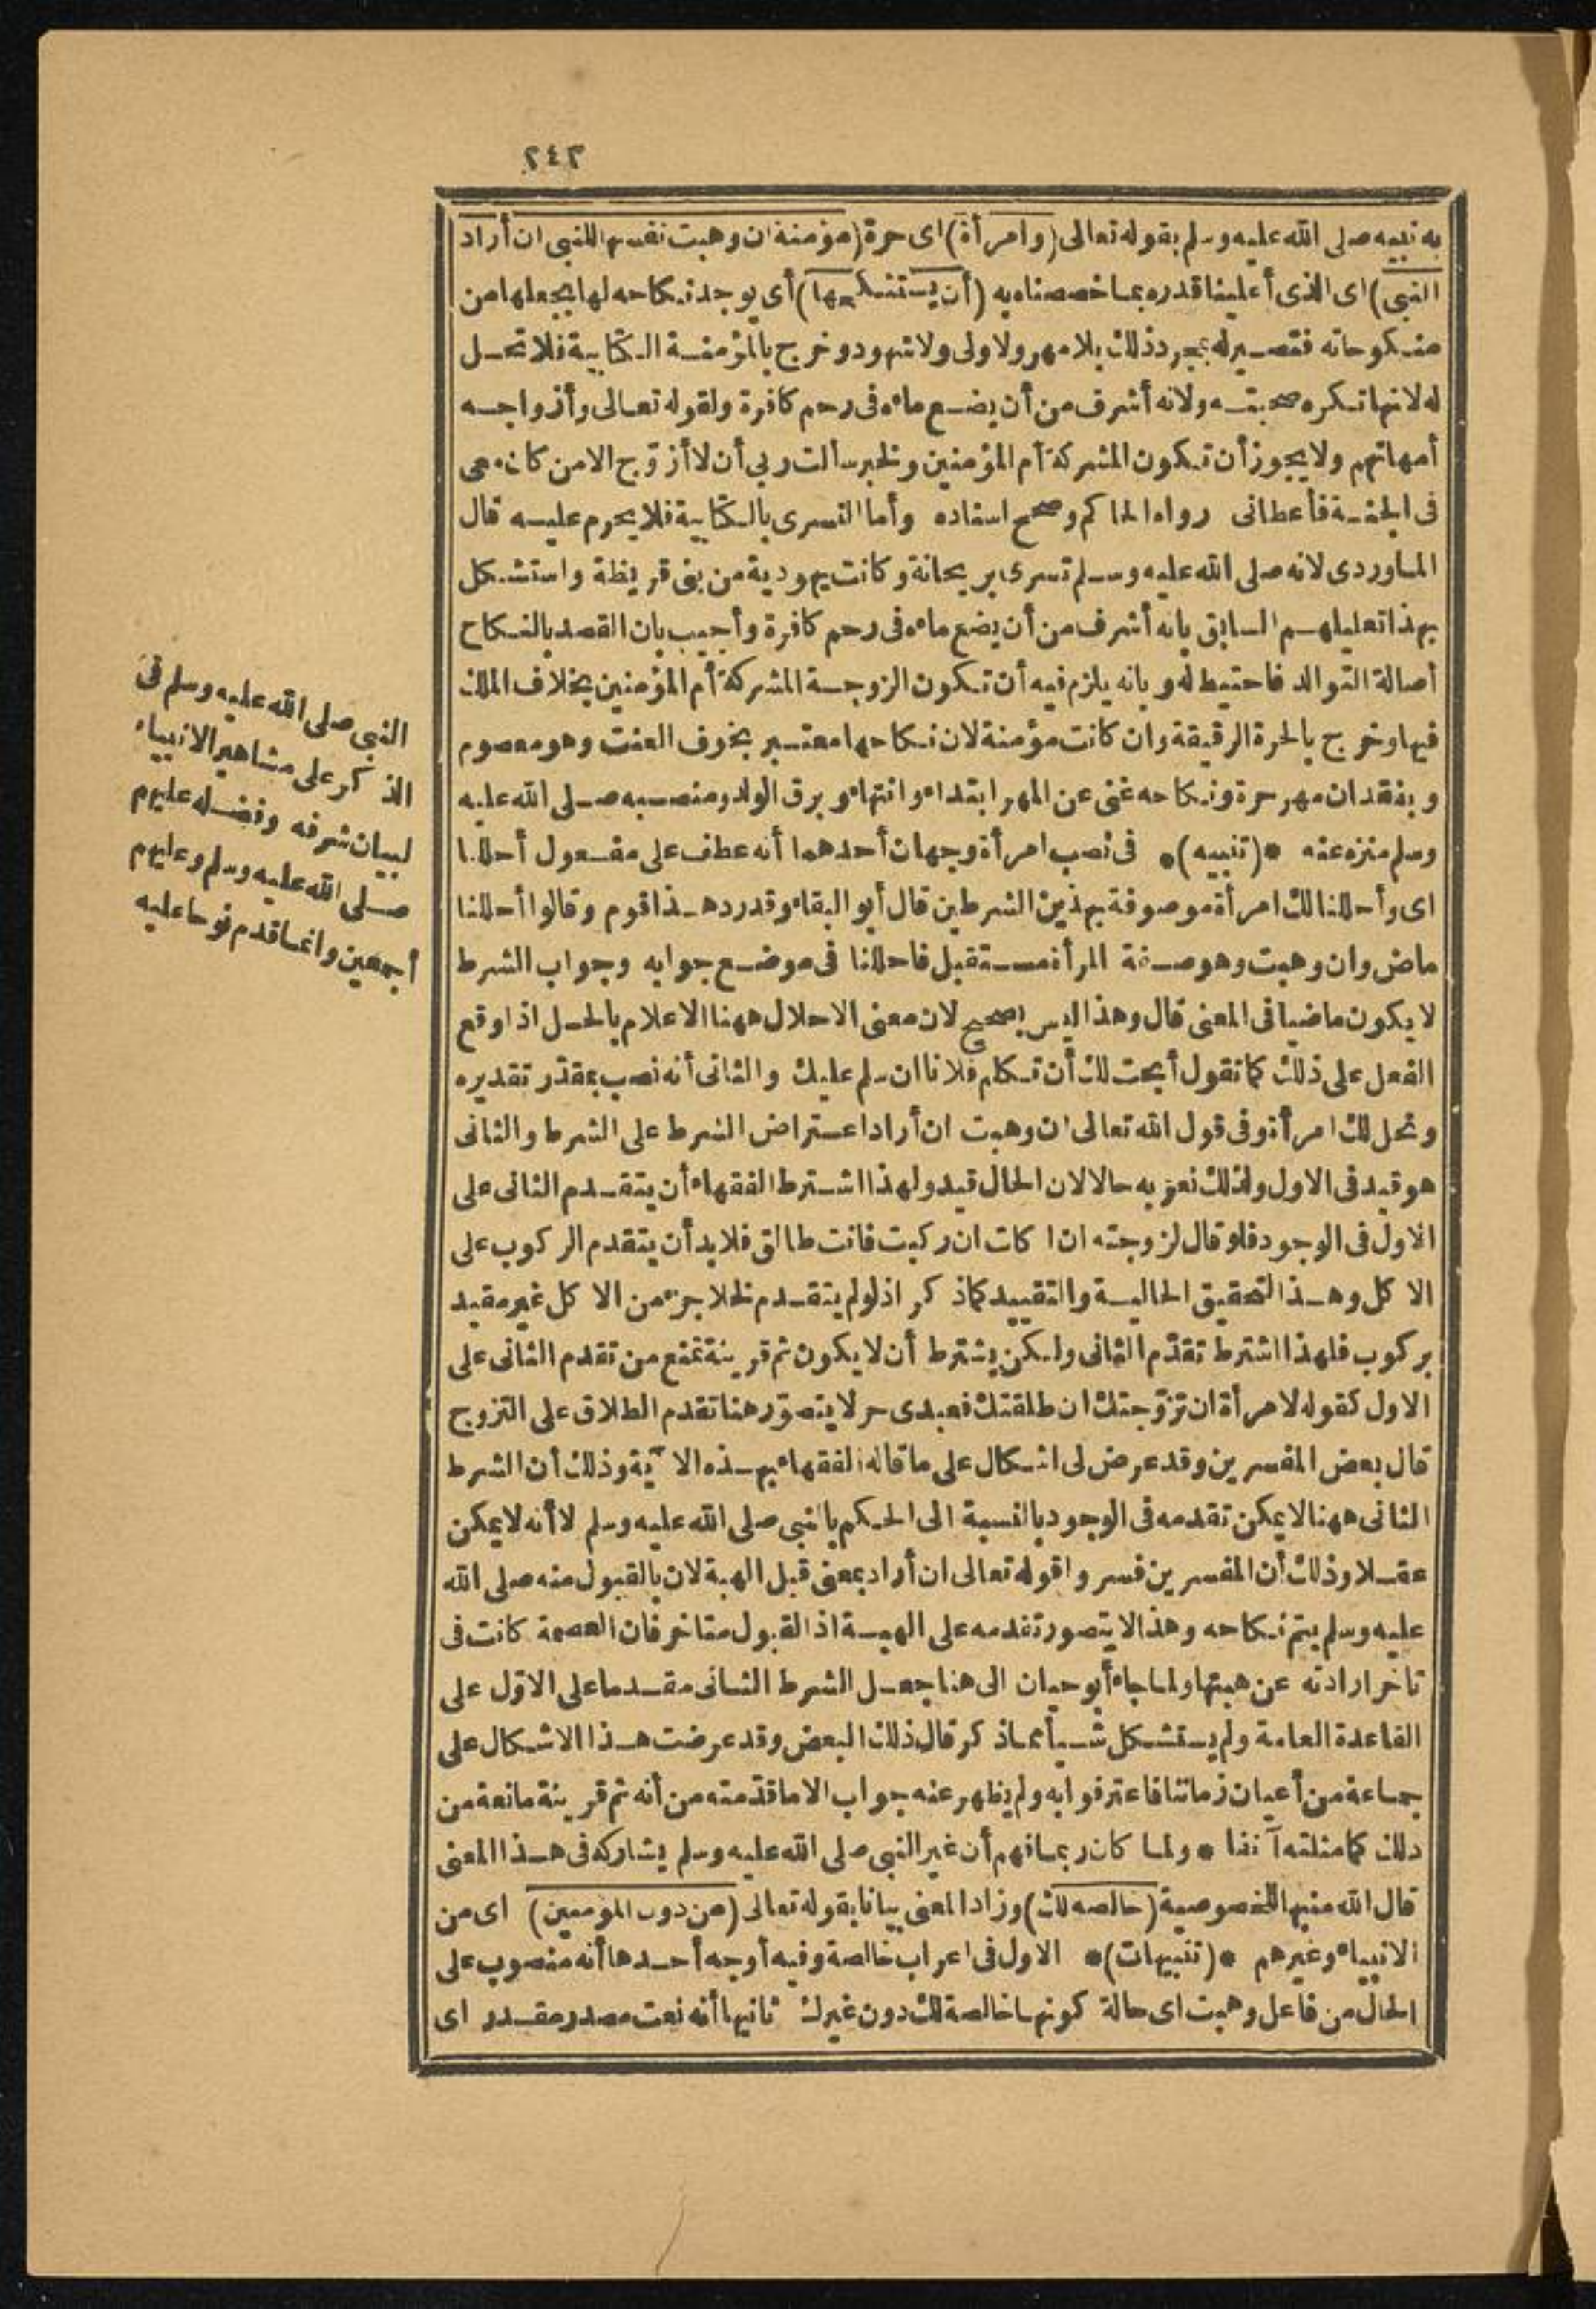 ٢٤٣
به نبيه صلى الله عليه وسلم بقوله تعالى (وامرأة) اى حرة (مؤمنة ان وهبت نفسها للنبى ان أراد
النبى) اى الذى أعلينا قدره بما خصصناه به (أن يستنكحها) أى يوجد نكاحه لها يجعلها من
منكوحاته فتصير له بمجرد ذلك بلا مهر ولا ولى ولا شهود وخرج بالمؤمنة الكتابية فلا تحل
له لانها تكره صحبته ولانه أشرف من أن يضع ماءه فى رحم كافرة ولقوله تعالى وأزواجه
أمهاتهم ولا يجوز أن تكون المشركة أم المؤمنين ولخبر سألت ربى أن لا أزوّج الا من كان معى
فى الجنة فأعطانى رواه الحاكم وصحح اسناده وأما التسرى بالكتابية فلا يحرم عليه قال
الماوردى لانه صلى الله عليه وسلم تسرى بريحانة وكانت يهودية من بنى قريظة واستشكل
بهذا تعليلهم السابق بانه أشرف من أن يضع ماءه فى رحم كافرة وأجيب بان القصد بالنكاح
أصالة التوالد فاحتيط له وبانه يلزم فيه أن تكون الزوجة المشركة أم المؤمنين بخلاف الملك
فيها وخرج بالحرة الرقيقة وان كانت مؤمنة لان نكاحها معتبر بخوف العنت وهو معصوم
وبفقدان مهر حرة ونكاحه غنى عن المهر ابتداء وانتهاء وبرق الولد ومنصبه صلى الله عليه
وسلم منزه عنه *(تنبيه)* فى نصب امرأة وجهان أحدهما أنه عطف على مفعول أحللنا
اى وأحللنا لك امرأة موصوفة بهذين الشرطين قال أبو البقاء وقد رد هذا قوم وقالوا أحللنا
ماض وان وهبت وهو صفة المرأة مستقبل فاحللنا فى موضع جوابه وجواب الشرط
لا يكون ماضيا فى المعنى قال وهذا ليس بصحيح لان معنى الاحلال ههنا الاعلام بالحل اذا وقع
الفعل على ذلك كما تقول أبحت لك أن تكلم فلانا ان سلم عليك والثانى أنه نصب بمقدّر تقديره
ونحل لك امرأة وفى قول الله تعالى ان وهبت ان أراد اعتراض الشرط على الشرط والثانى
هو قيد فى الاول ولذلك نعربه حالا لان الحال قيد ولهذا اشترط الفقهاء أن يتقدم الثانى على
الاول فى الوجود فلو قال لزوجته ان اكلت ان ركبت فانت طالق فلا بد أن يتقدم الركوب على
الاكل وهذا التحقيق الحالية والتقييد كما ذكر اذ لو لم يتقدم لخلا جزء من الاكل غير مقيد
بركوب فلهذا اشترط تقدّم الثانى ولكن يشترط أن لا يكون ثم قرينة تمنع من تقدم الثانى على
الاول كقوله لامرأة ان تزوّجتك ان طلقتك فعبدى حر لا يتصوّر هنا تقدم الطلاق على التزوج
قال بعض المفسرين وقد عرض لى اشكال على ما قاله الفقهاء بهذه الآية وذلك أن الشرط
الثانى ههنا لا يمكن تقدمه فى الوجود بالنسبة الى الحكم بالنبى صلى الله عليه وسلم لا أنه لا يمكن
عقلا وذلك أن المفسرين فسروا قوله تعالى ان أراد بمعنى قبل الهبة لان بالقبول منه صلى الله
عليه وسلم يتم نكاحه وهذا لا يتصور تقدمه على الهبة اذ القبول متاخر فان العصمة كانت فى
تاخر ارادته عن هبتها ولما جاء أبو حيان الى هنا جعل الشرط الثانى مقدما على الاوّل على
القاعدة العامة ولم يستشكل شيأ مما ذكر قال ذلك البعض وقد عرضت هذا الاشكال على
جماعة من أعيان زماننا فاعترفوا به ولم يظهر عنه جواب الا ما قدّمته من أنه ثم قرينة مانعة من
ذلك كما مثلته آنفا * ولما كان ربما فهم أن غير النبى صلى الله عليه وسلم يشاركه فى هذا المعنى
قال الله منبها للخصوصية (خالصة لك) وزاد المعنى بيانا بقوله تعالى (من دون المؤمنين) اى من
الانبياء وغيرهم *(تنبيهات)* الاول فى اعراب خالصة وفيه أوجه أحدها أنه منصوب على
الحال من فاعل وهبت اى حالة كونها خالصة لك دون غيرك ثانيها أنه نعت مصدر مقدر اى
النبى صلى الله عليه وسلم فى
الذكر على مشاهير الانبياء
لبيان شرفه وفضله عليهم
صلى الله عليه وسلم وعليهم
أجمعين وانما قدم نوحا عليه